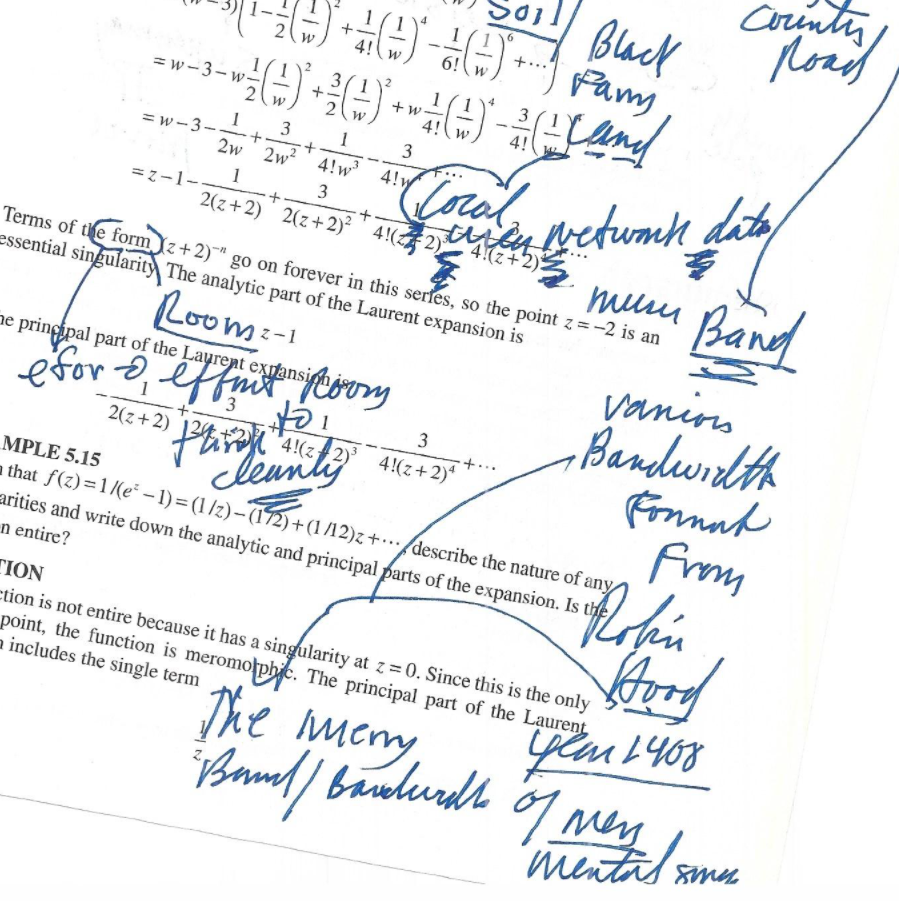 Soil
Country
Road
(w-3)(1-\frac{1}{2}(\frac{1}{w})^2+\frac{1}{4!}(\frac{1}{w})^4-\frac{1}{6!}(\frac{1}{w})^6+...)
Black
Farm
=w-3-w\frac{1}{2}(\frac{1}{w})^2+\frac{3}{2}(\frac{1}{w})^2+w\frac{1}{4!}(\frac{1}{w})^4-\frac{3}{4!}(\frac{1}{w})
Land
=w-3-\frac{1}{2w}+\frac{3}{2w^2}+\frac{1}{4!w^3}-\frac{3}{4!w}+...
Local
=z-1-\frac{1}{2(z+2)}+\frac{3}{2(z+2)^2}+\frac{1}{4!(z+2)^3}-\frac{3}{4!(z+2)}...
network data
Terms of the form (z+2)^{-n} go on forever in this series, so the point z=-2 is an
essential singularity. The analytic part of the Laurent expansion is
Band
Room
z-1
he principal part of the Laurent expansion is
effort Room
-\frac{1}{2(z+2)}+\frac{3}{2(z+2)^2}+\frac{1}{4!(z+2)^3}-\frac{3}{4!(z+2)^4}+...
to
think
clearly
various
Bandwidth
Format
From
Robin
Hood
MPLE 5.15
that f(z)=1/(e^z-1)=(1/z)-(1/2)+(1/12)z+..., describe the nature of any
arities and write down the analytic and principal parts of the expansion. Is the
n entire?
TION
ction is not entire because it has a singularity at z=0. Since this is the only
point, the function is meromorphic. The principal part of the Laurent
includes the single term
\frac{1}{z}
The merry
Band/Bandwidth
year 1408
of men
mental